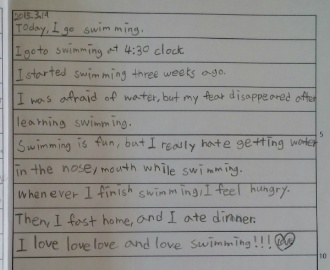 2015.3.19
Today, I go swimming.
I goto swimming at 4:30 clock
I started swimming three weeks ago.
I was afraid of water, but my fear disappeared after
learning swimming.
5
Swimming is fun, but I really hate getting water
in the nose, mouth while swimming.
whenever I finish swimming, I feel hungry.
Then, I fast home, and I ate dinner.
I love love love and love swimming!!!
10